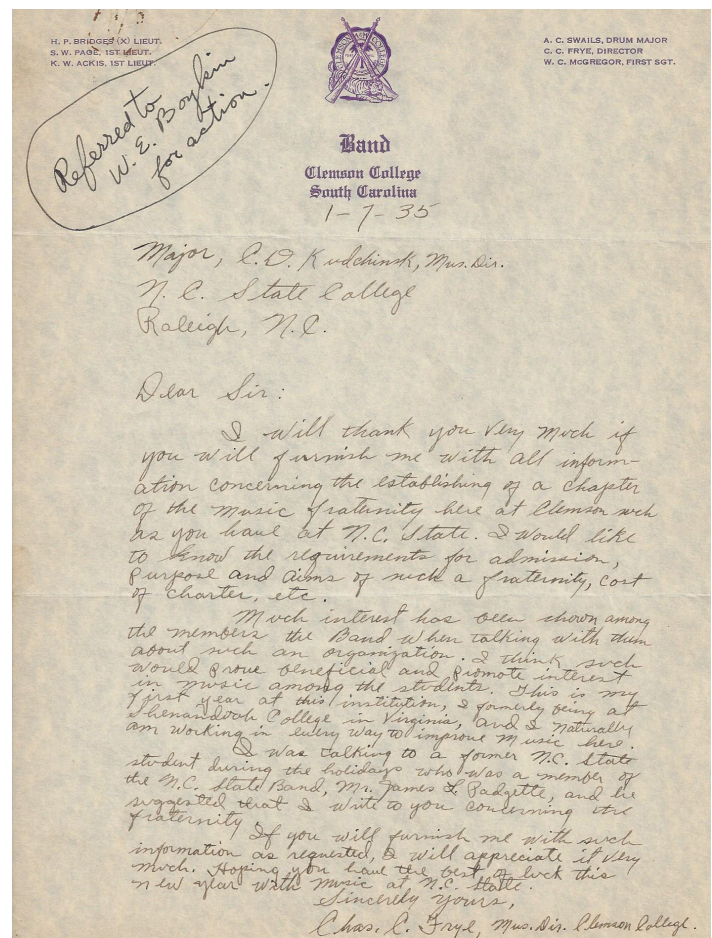 H. P. BRIDGES (X) LIEUT.
S. W. PAGE, 1ST LIEUT.
K. W. ACKIS, 1ST LIEUT.
A. C. SWAILS, DRUM MAJOR
C. C. FRYE, DIRECTOR
W. C. McGREGOR, FIRST SGT.
Referred to
W. E. Boykin
for action.
Band
Clemson College
South Carolina
1-7-35
Major, C. D. Kudchinsk, Mus. Dir.
N. C. State College
Raleigh, N.C.
Dear Sir:
I will thank you very much if
you will furnish me with all inform-
ation concerning the establishing of a chapter
of the music fraternity here at Clemson such
as you have at N.C. State. I would like
to know the requirements for admission,
purpose and aims of such a fraternity, cost
of charter, etc.
Much interest has been shown among
the members the Band when talking with them
about such an organization. I think such
would prove beneficial and promote interest
in music among the students. This is my
first year at this institution, I formerly being at
Shenandoah College in Virginia, and I naturally
am working in every way to improve music here.
I was talking to a former N.C. State
student during the holidays who was a member of
the N.C. State Band, Mr. James L. Padgette, and he
suggested that I write to you concerning the
fraternity.
If you will furnish me with such
information as requested, I will appreciate it very
much. Hoping you have the best of luck this
new year with music at N.C. State.
Sincerely Yours,
Chas. C. Frye, Mus. Dir. Clemson College.